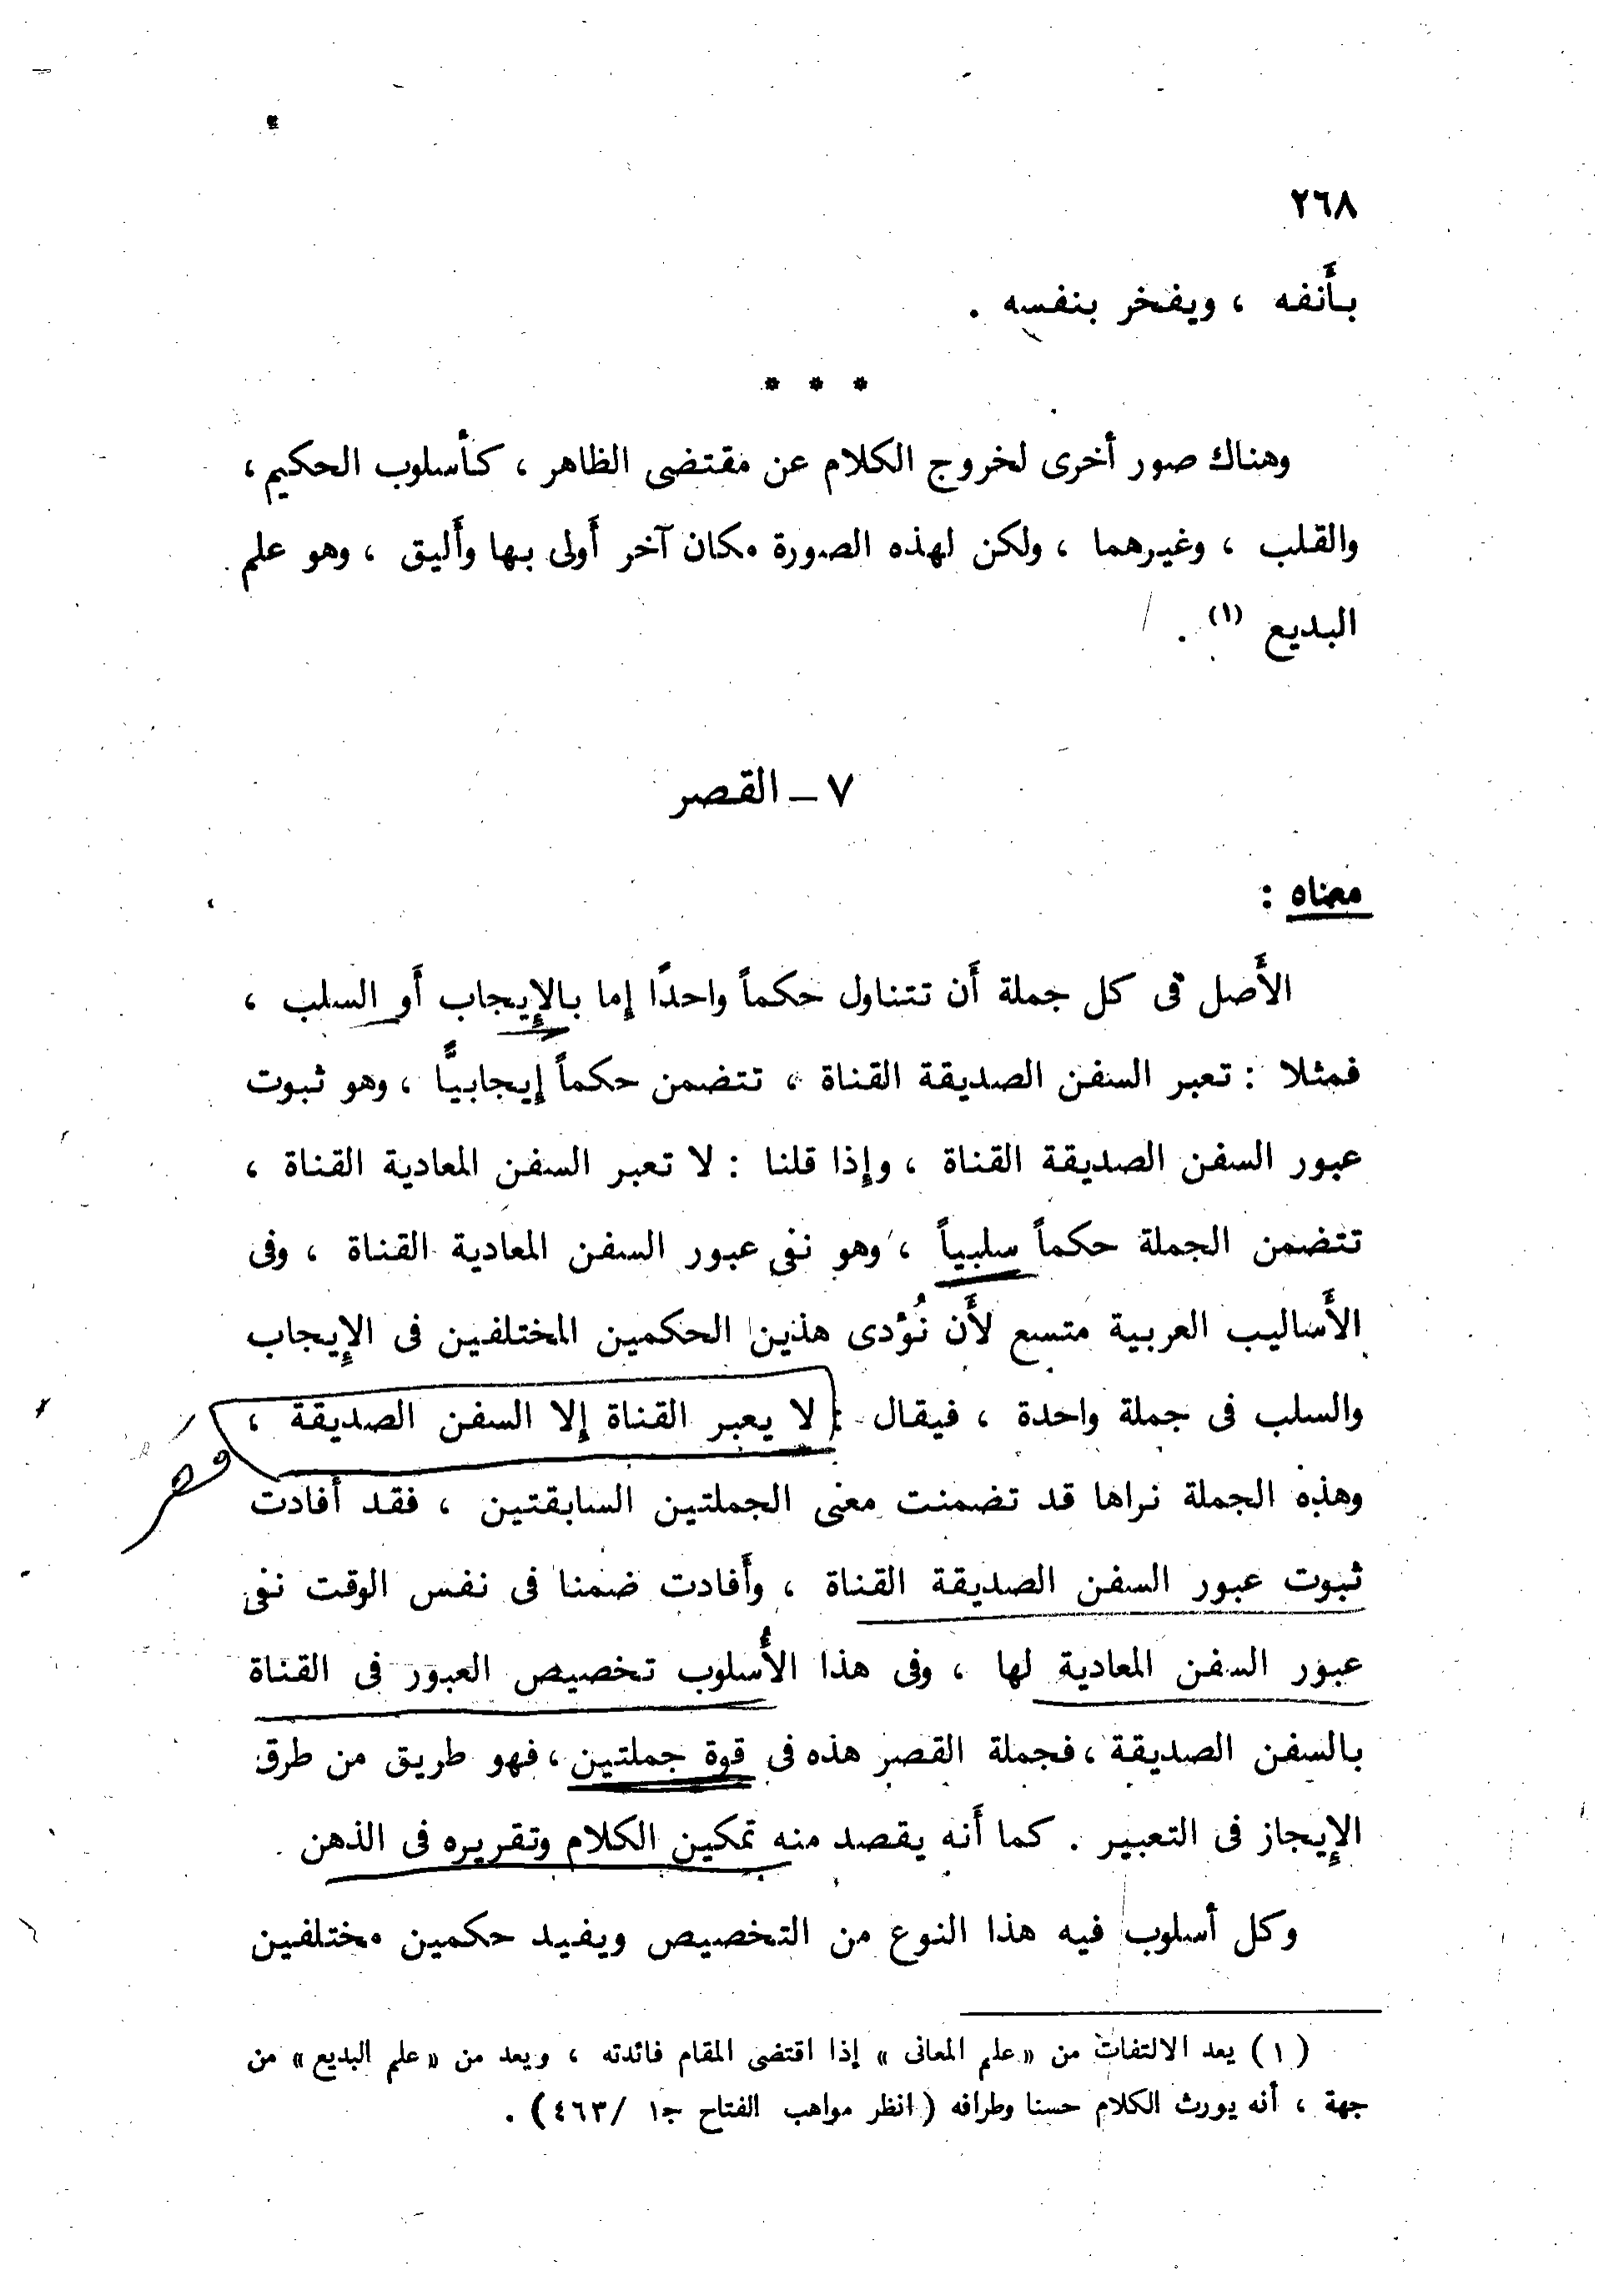 ٢٦٨
بأَنفه ، ويفخر بنفسه .
* * *
وهناك صور أخرى لخروج الكلام عن مقتضى الظاهر ، كأسلوب الحكيم ،
والقلب ، وغيرهما ، ولكن لهذه الصورة مكان آخر أَولى بها وأَليق ، وهو علم
البديع (١) .
٧ – القصر
معناه :
الأَصل فى كل جملة أَن تتناول حكماً واحدًا إِما بالإِيجاب أَو السلب ،
فمثلا : تعبر السفن الصديقة القناة ، تتضمن حكماً إِيجابيًّا ، وهو ثبوت
عبور السفن الصديقة القناة ، وإِذا قلنا : لا تعبر السفن المعادية القناة ،
تتضمن الجملة حكماً سلبياً ، وهو نفى عبور السفن المعادية القناة ، وفى
الأَساليب العربية متسع لأَن نُؤدى هذين الحكمين المختلفين فى الإِيجاب
والسلب فى جملة واحدة ، فيقال : لا يعبر القناة إِلا السفن الصديقة ،
قصر
وهذه الجملة نراها قد تضمنت معنى الجملتين السابقتين ، فقد أَفادت
ثبوت عبور السفن الصديقة القناة ، وأَفادت ضمنا فى نفس الوقت نفى
عبور السفن المعادية لها ، وفى هذا الأُسلوب تخصيص العبور فى القناة
بالسفن الصديقة ، فجملة القصر هذه فى قوة جملتين ، فهو طريق من طرق
الإِيجاز فى التعبير . كما أَنه يقصد منه تمكين الكلام وتقريره فى الذهن .
وكل أسلوب فيه هذا النوع من التخصيص ويفيد حكمين مختلفين
(١) يعد الالتفات من «علم المعانى» إذا اقتضى المقام فائدته ، ويعد من «علم البديع» من
جهة ، أنه يورث الكلام حسنا وطرافه (انظر مواهب الفتاح ج١ /٤٦٣) .